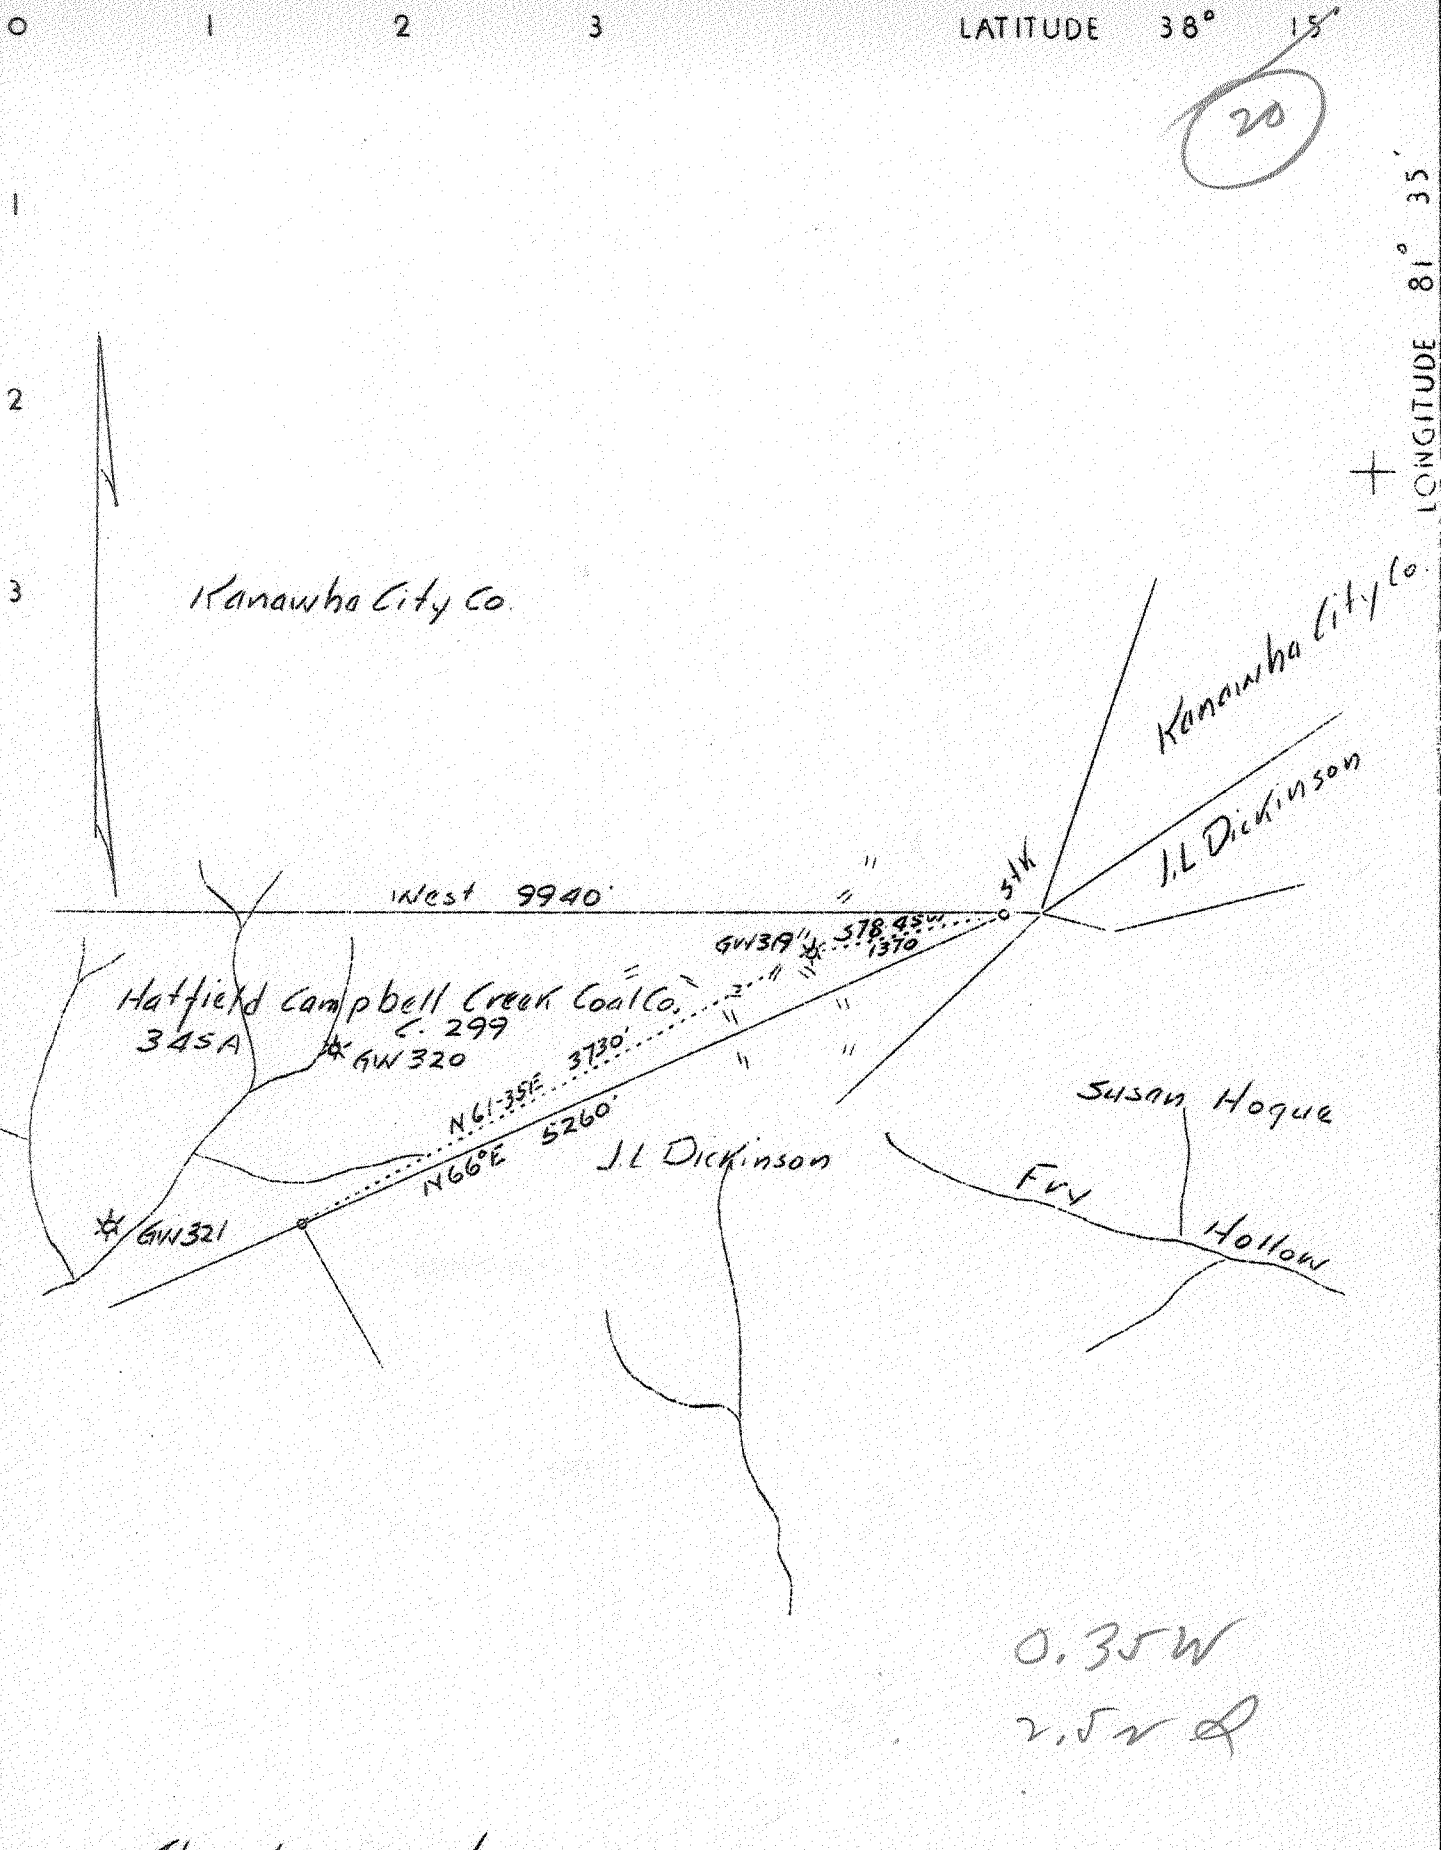 0 1 2 3 LATITUDE 38° 15'
20
1
LONGITUDE 81° 35'
2
3
Kanawha City Co.
Kanawha City Co.
J.L Dickinson
STK
West 9940'
S78 45W
1370
GW319
Hatfield Campbell Creek Coal Co.
345A
C. 299
GW 320
N 61-35E 3730'
N66°E 5260'
J.L Dickinson
Susan Hogue
Fry
Hollow
GW321
0.35W
2.52